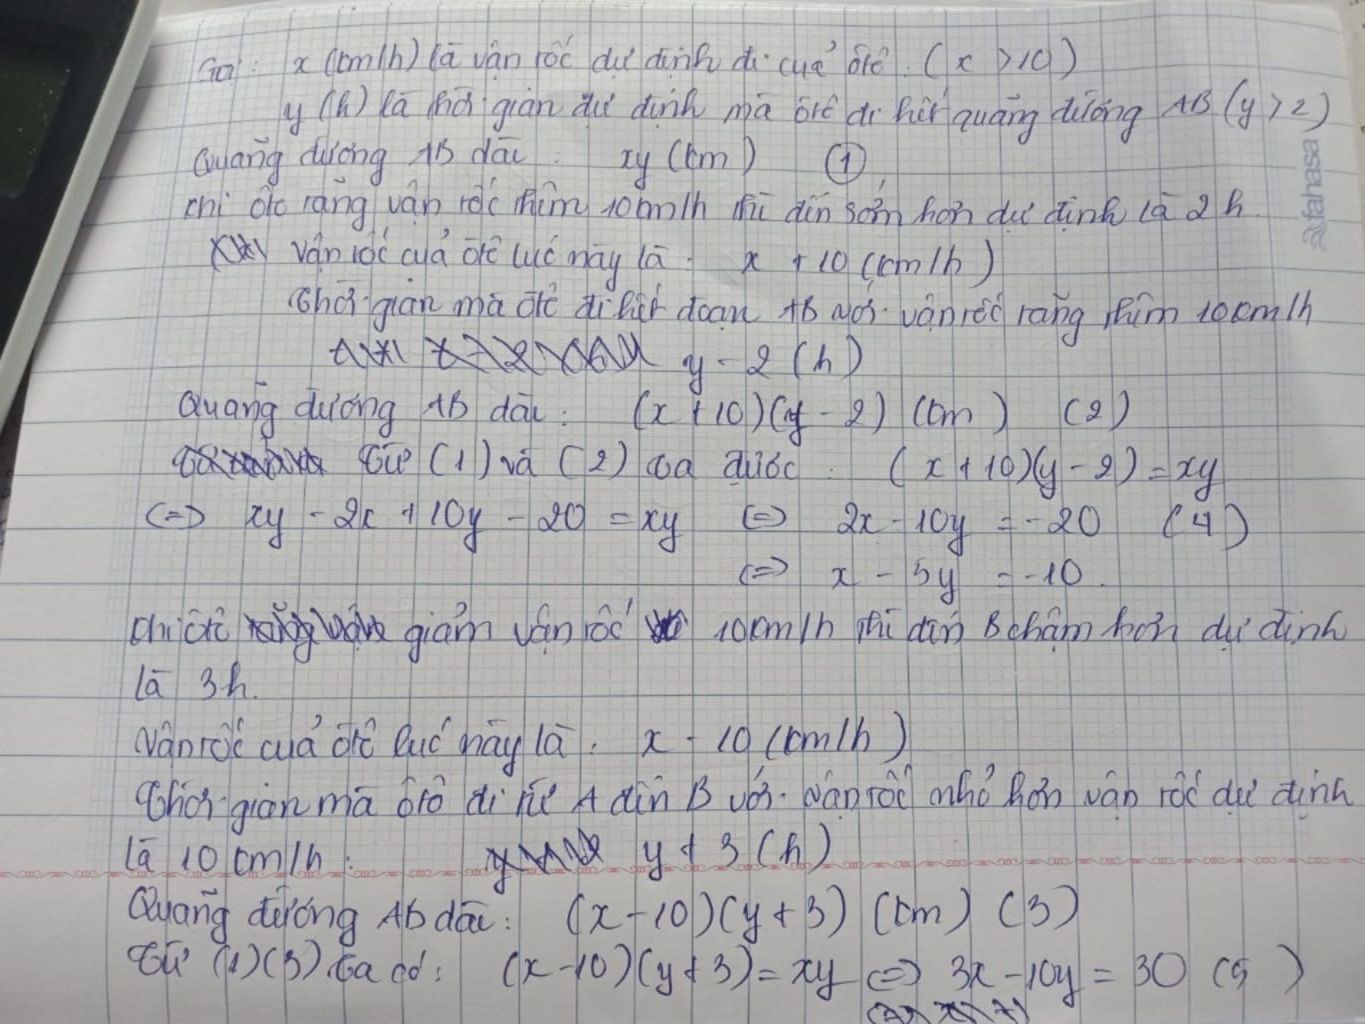 Gọi: x (km/h) là vận tốc dự định đi của ôtô. (x > 10)
y (h) là thời gian dự định mà ôtô đi hết quãng đường AB (y > 2)
Quãng đường AB dài: xy (km) (1)
Khi ôtô tăng vận tốc thêm 10km/h thì đến sớm hơn dự định là 2h.
Vận tốc của ôtô lúc này là: x + 10 (km/h)
Thời gian mà ôtô đi hết đoạn AB với vận tốc tăng thêm 10km/h
y - 2 (h)
Quãng đường AB dài: (x + 10)(y - 2) (km) (2)
Từ (1) và (2) ta được: (x + 10)(y - 2) = xy
<=> xy - 2x + 10y - 20 = xy <=> 2x - 10y = -20 (4)
<=> x - 5y = -10.
Khi ôtô giảm vận tốc 10km/h thì đến B chậm hơn dự định
là 3h.
Vận tốc của ôtô lúc này là: x - 10 (km/h)
Thời gian mà ôtô đi từ A đến B với vận tốc nhỏ hơn vận tốc dự định
là 10km/h: y + 3 (h)
Quãng đường AB dài: (x - 10)(y + 3) (km) (3)
Từ (1)(3) ta có: (x - 10)(y + 3) = xy <=> 3x - 10y = 30 (5)
fahasa